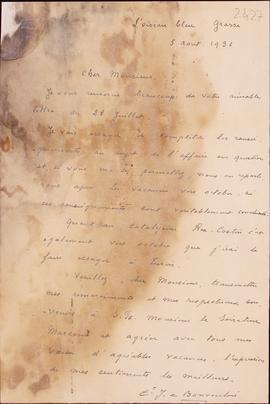 L'oiseau bleu Grasse
2427
5 août 1936
Cher Monsieur,
Je vous remercie beaucoup de votre aimable
lettre du 28 juillet.
Je vais essayer de compléter les rensei-
gnements au sujet de l'affaire en question
et si vous me le permettez, nous en
après les vacances vers octobre, si
ces renseignements sont véritablement
Quant au catalyseur c'est
également vers octobre que j'irai le
faire essayer à
Veuillez, cher Monsieur, transmettre
mes remerciements et mes respectueux sou-
venirs à Monsieur le Sénateur
et agréer avec tous mes
vœux d'agréables vacances, l'expression
de mes sentiments les meilleurs.